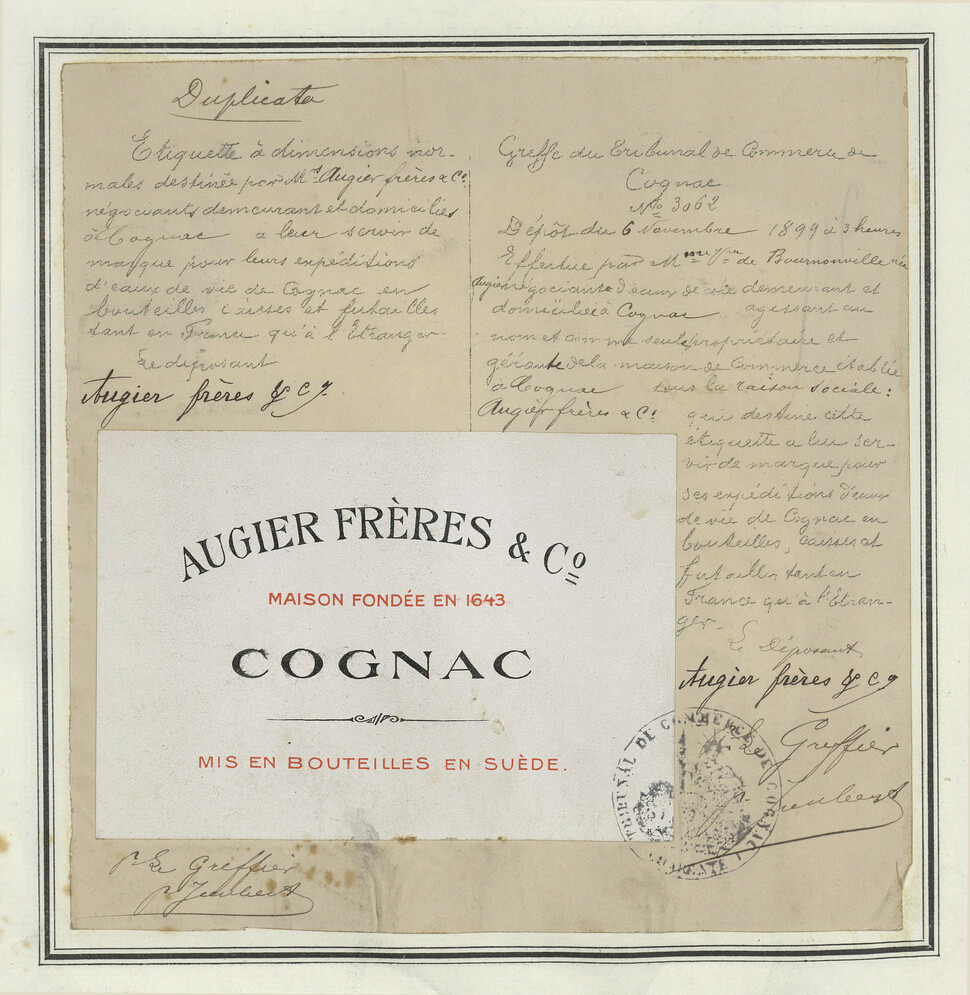 Duplicata
Etiquette à dimensions nor-
males destinée par Mrs Augier frères & Co.
négociants demeurant et domiciliés
à Cognac a leur servir de
marque pour leurs expéditions
d'eaux de vie de Cognac en
bouteilles caisses et futailles
tant en France qu'à l'Etranger
Le déposant
Augier frères & Cy.
Greffe du Tribunal de Commerce de
Cognac
No 3062
Dépôt du 6 Novembre 1899 à 3 heures
Effectué par Mme Vve de Bournonville née
Augier négociante d'eaux de vie demeurant et
domiciliée à Cognac agissant au
nom et comme seule propriétaire et
gérante de la maison de Commerce établie
à Cognac sous la raison sociale:
Augier frères & Co.
qui destine cette
étiquette a lui ser-
vir de marque pour
ses expéditions d'eaux
de vie de Cognac en
bouteilles, caisses et
futailles tant en
France qu'à l'Etran-
ger.
Le Déposant
Augier frères & Cy
Le Greffier
AUGIER FRÈRES & Co
MAISON FONDÉE EN 1643
COGNAC
MIS EN BOUTEILLES EN SUÈDE.
TRIBUNAL DE COMMERCE DE COGNAC
CHARENTE
pr Le Greffier